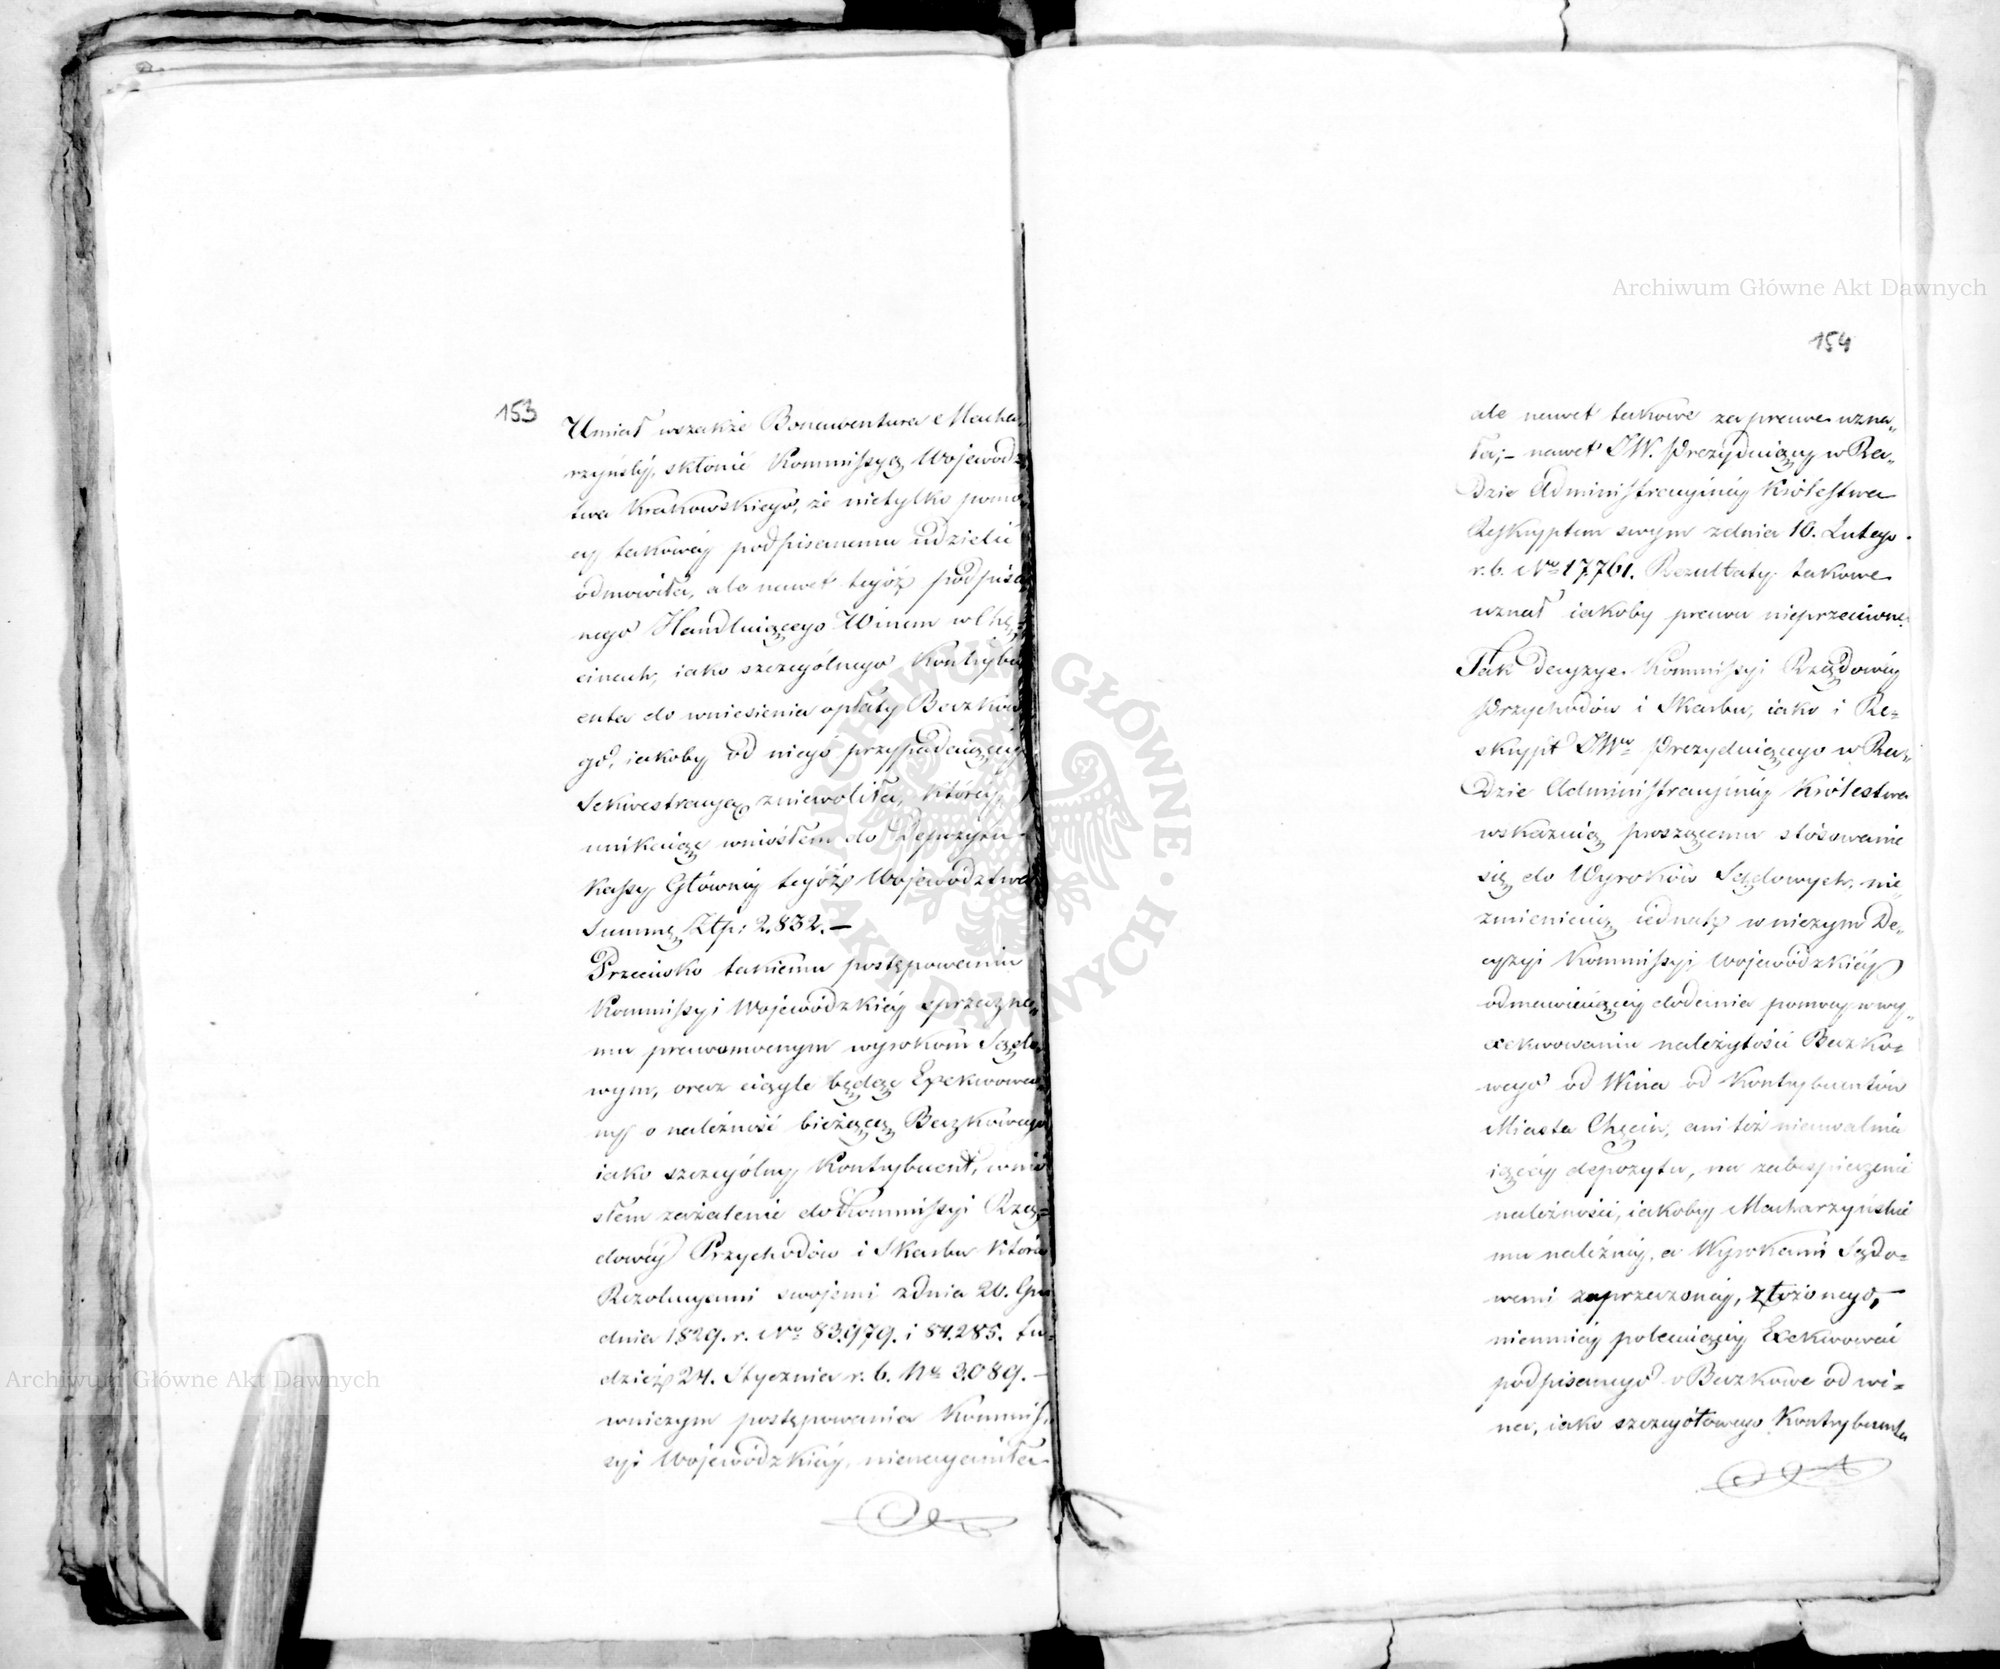 153
Umiał wszakże Bonawentura Macha-
rzyński, skłonić Kommissyą Wojewódz-
twa Krakowskiego, że nietylko pomo-
cy takowéy podpisanemu udzielić
odmówiła, ale nawet tegóż podpisa-
nego Handluiącego Winem w Chę-
cinach, iako szczególnego Kontrybu-
enta do wniesienia opłaty Beczkowe-
go, iakoby od niego przypadaiącéy
Sekwestracyą zniewoliła, któréy
unikaiąc wniósłem do Depozytu
Kassy Głównéy tegóż Województwa
Summę Złtp: 2.832.—
Przeciwko takiemu postępowaniu
Kommissyi Wojewódzkiéy sprzeczne-
mu prawomocnym wyrokom Sądo-
wym, oraz ciągle będąc Exekwowa-
ny o należność bieżącą Beczkowego
iako szczególny Kontrybuent, wnio-
słem zażalenie do Kommissyi Rzą-
dowéy Przychodów i Skarbu która
Rezolucyami swojemi zdnia 20. Gru-
dnia 1829. r. No 83.979. i 84.285. tu-
dzież 24. Stycznia r. b. No 3.089.—
wniczym postępowania Kommis-
syi Wojewódzkiéy, nienaganiła
154
ale nawet takowe za prawe uzna-
ła;— nawet JW. Prezyduiący w Ra-
dzie Administracyinéy Królestwa
Reskryptem swym zdnia 10. Lutego
r. b. No 17.761. Rezultaty takowe
uznał iakoby prawu nieprzeciwne.
Tak decyzye Kommissyi Rządowéy
Przychodów i Skarbu, iako i Re-
skrypt JWo Prezyduiącego w Ra-
dzie Administracyinéy Królestwa
wskazuią proszącemu stósowanie
się do Wyroków Sądowych, nie-
zmieniaią iednak w niczym De-
cyzyi Kommissyi Wojewódzkiéy
odmawiaiącéy dodania pomocy w wy-
exekwowaniu należytości Beczko-
wego od Wina od Kontrybuentów
Miasta Chęcin, ani też nieuwalnia
iącéy depozytu, na zabespieczenie
należności, iakoby Macharzyńskie
mu należnéy, a Wyrokami Sądo-
wemi zaprzeczonéy, złożonego,—
niemniéy polecaiącéy Exekwować
podpisanego o Beczkowe od wi-
na, iako szczegółowego Kontrybuenta
Archiwum Główne Akt Dawnych
Archiwum Główne Akt Dawnych
ARCHIWUM GŁÓWNE AKT DAWNYCH